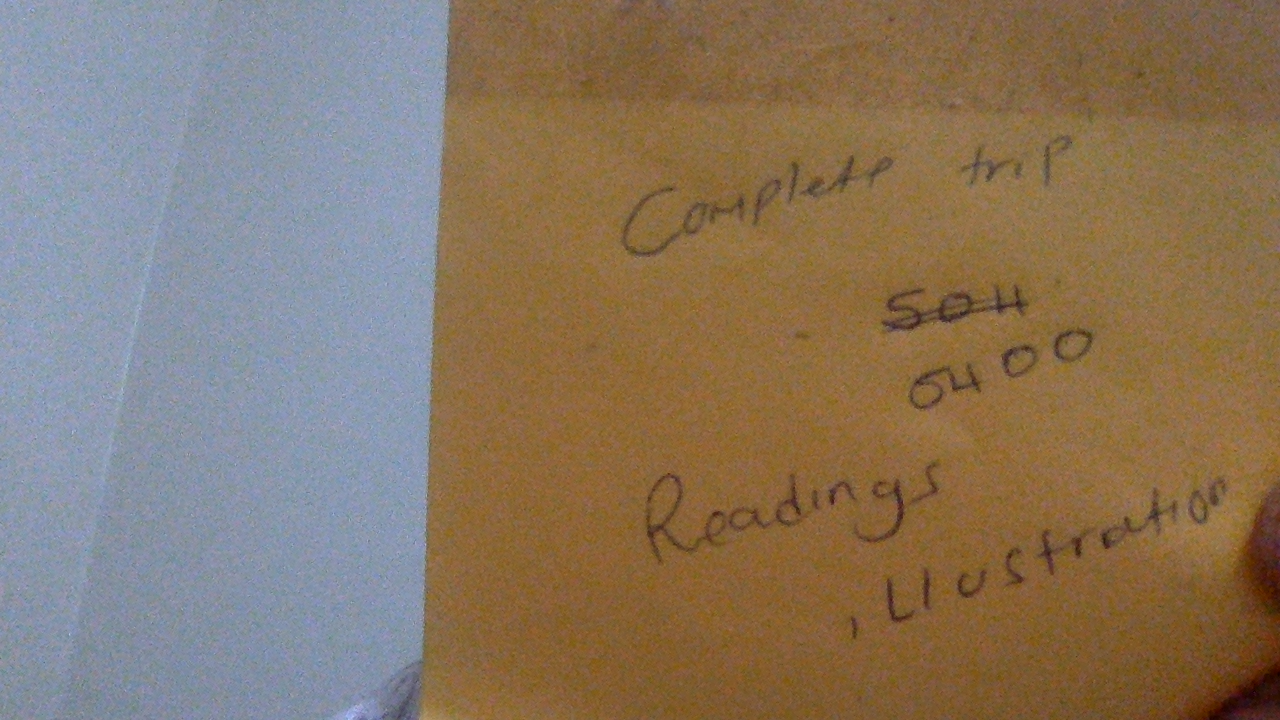 Complete trip
504
0400
Readings
, Llustration